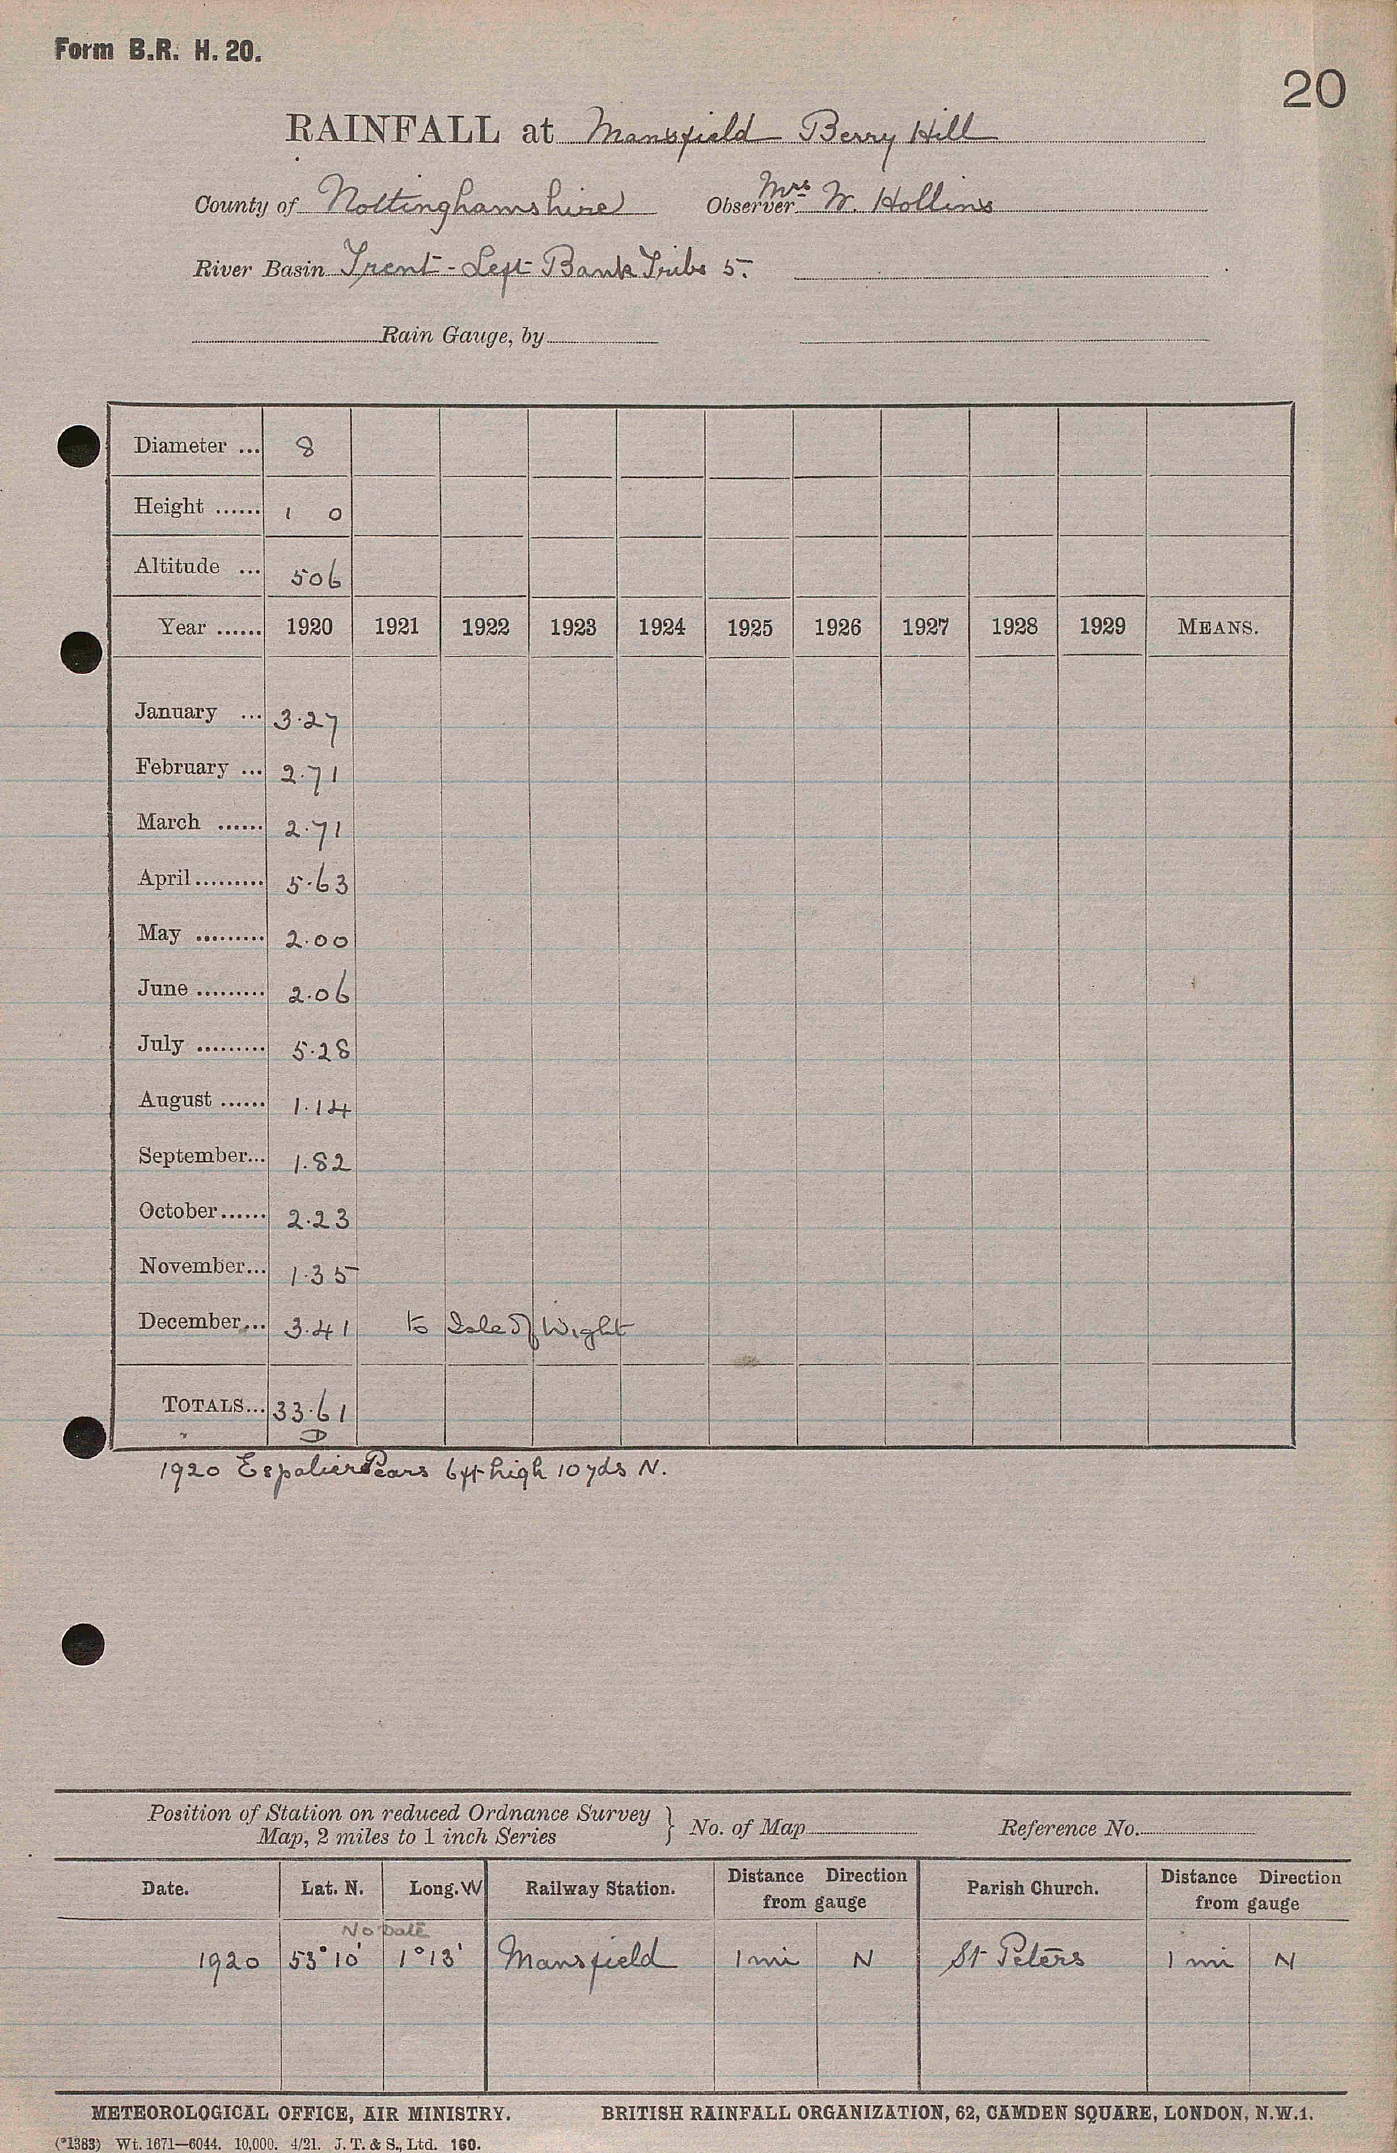 Form B.R. H. 20.
20
RAINFALL at Mansfield Berry Hill
County of Nottinghamshire Observer Mrs W. Hollins
River Basin Trent - Left Bank Tribs 5.
Rain Gauge, by
Diameter ... 8
Height ...... 1 0
Altitude ... 506
Year ...... 1920 1921 1922 1923 1924 1925 1926 1927 1928 1929 MEANS.
January ... 3.27
February ... 2.71
March ...... 2.71
April......... 5.63
May ......... 2.00
June ......... 2.06
July ......... 5.28
August ...... 1.14
September... 1.82
October...... 2.23
November... 1.35
December... 3.41 to Isle of Wight
TOTALS... 33.61
D
1920 Espaliers Pears 6ft high 10yds N.
Position of Station on reduced Ordnance Survey
Map, 2 miles to 1 inch Series } No. of Map Reference No.
Date. Lat. N. Long. W Railway Station. Distance Direction Parish Church. Distance Direction
from gauge from gauge
No Date
1920 53° 10' 1° 13' Mansfield 1 mi N St Peters 1 mi N
METEOROLOGICAL OFFICE, AIR MINISTRY. BRITISH RAINFALL ORGANIZATION, 62, CAMDEN SQUARE, LONDON, N.W.1.
(*1383) Wt. 1671—6044. 10,000. 4/21. J. T. & S., Ltd. 160.